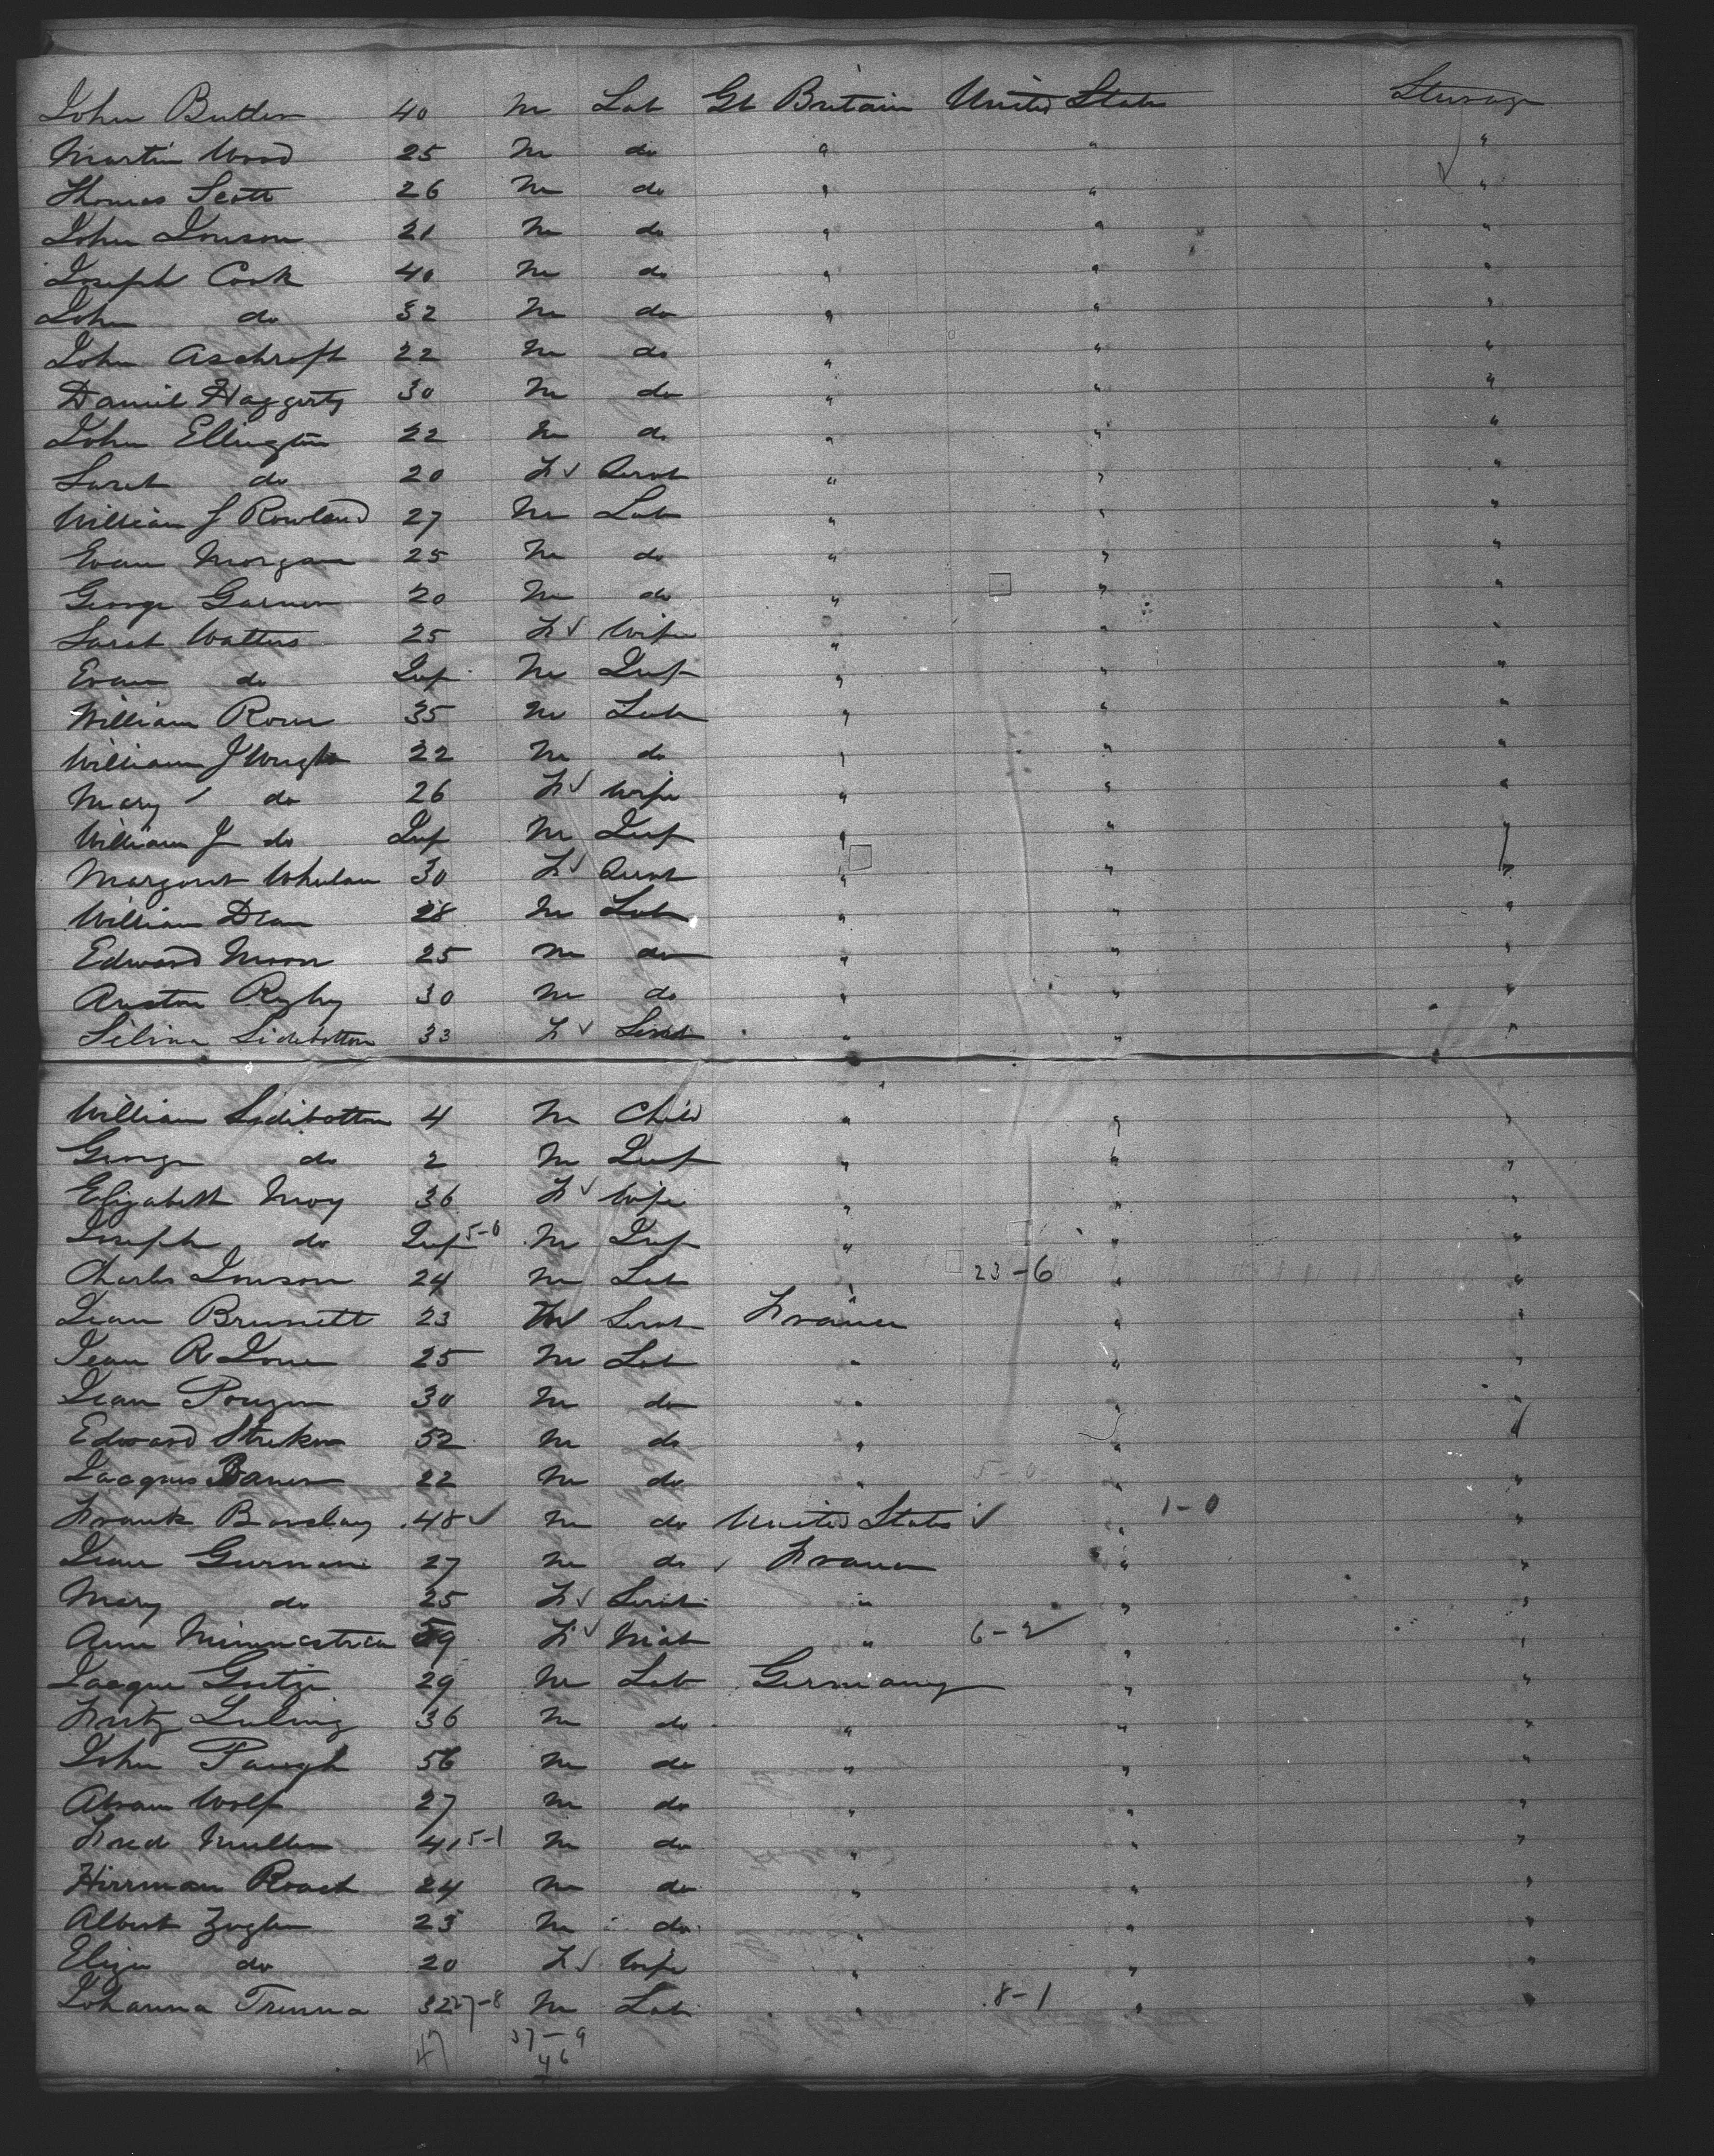 John Butler 40 M Lab Gt Britain United States Steerage
Martin Wood 25 M do " " "
Thomas Scott 26 M do " " "
John Jonson 21 M do " " "
Joseph Cook 40 M do " " "
John do 32 M do " " "
John Aschroft 22 M do " " "
Daniel Haggerty 30 M do " " "
John Ellington 22 M do " " "
Sarah do 20 F ✓ " " "
William J Rowland 27 M Lab " " "
Evan Morgan 25 M do " " "
George Garner 20 M do " " "
Sarah Watters 25 F ✓ Wife " " "
Evan do Inf M Inf " " "
William Rowe 35 M Lab " " "
William J Wright 22 M do " " "
Mary do 26 F ✓ Wife " " "
William J do Inf M Inf " " "
Margaret Whelan 30 F ✓ " " "
William Dean 28 M Lab " " "
Edward Moon 25 M do " " "
30 M do " " "
Selina Sidebottom 33 F ✓ Servt " " "
William Sidebottom 4 M Child " " "
George do 2 M Inf " " "
Elizabeth Moy 36 F ✓ Wife " " "
Joseph do Inf 5-0 M Inf " " "
Charles Jonson 24 M Lab 23-6 " "
Jean Brunett 23 Servt France " "
Jean 25 M Lab " " "
Jean 30 M do " " "
Edward 52 M do " " "
Jacques Baner 22 M do " 5-0 " "
Frank Barclay 48 ✓ M do United States ✓ " 1-0 "
Jean 27 M do ✓ France " "
Mary do 25 F ✓ Servt " " "
Ann 59 F ✓ " 6-2 " "
Jacque 29 M Lab Germany " "
Fritz Luling 36 M do " " "
John 56 M do " " "
Abram Wolf 27 M do " " "
Fred Muller 41 5-1 M do " " "
Herrman Roach 24 M do " " "
Albert 23 M do " " "
Eliza do 20 F ✓ Wife " " "
Johanna 32 27-8 M Lab " 8-1 " "
47 37-9
46